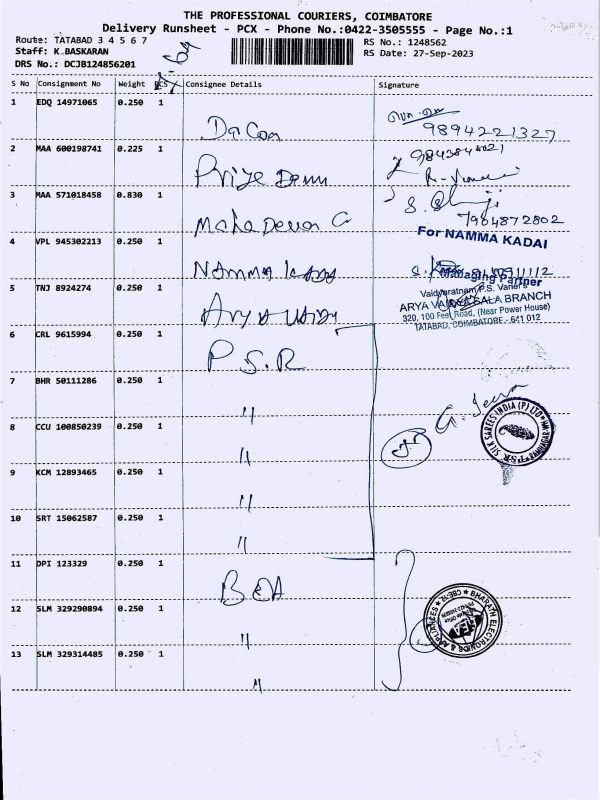 THE PROFESSIONAL COURIERS, COIMBATORE
Delivery Runsheet - PCX - Phone No.:0422-3505555 - Page No.:1
Route: TATABAD 3 4 5 6 7
RS No.: 1248562
Staff: K.BASKARAN
RS Date: 27-Sep-2023
DRS No.: DCJB124856201
S No Consignment No Weight PCS Consignee Details Signature
1 EDQ 14971065 0.250 1
9894221327
2 MAA 600198741 0.225 1
9843848021
3 MAA 571018458 0.830 1
Mahadevan G
7904872802
4 VPL 945302213 0.250 1
For NAMMA KADAI
Namma Kadai
Managing Partner
5 TNJ 8924274 0.250 1
Vaidyaratnam P.S. Varier's
ARYA VAIDYA SALA BRANCH
Arya Vaidy
320, 100 Feet Road, (Near Power House)
TATABAD, COIMBATORE - 641 012
6 CRL 9615994 0.250 1
P.S.R
7 BHR 50111286 0.250 1
"
8 CCU 100850239 0.250 1
SILK SAREES INDIA (P) LTD
"
9 KCM 12893465 0.250 1
"
10 SRT 15062587 0.250 1
"
11 DPI 123329 0.250 1
BEA
12 SLM 329290894 0.250 1
BHARATH ELECTRONICS & APPLIANCES
CBE-12
"
13 SLM 329314485 0.250 1
"